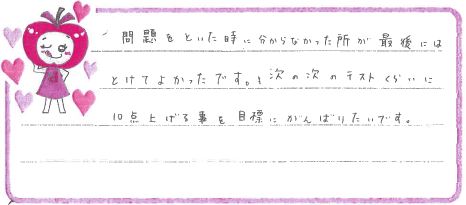 問題をといた時に分からなかった所が最後には
とけてよかったです。次の次のテストくらいに
10点上げる事を目標にがんばりたいです。